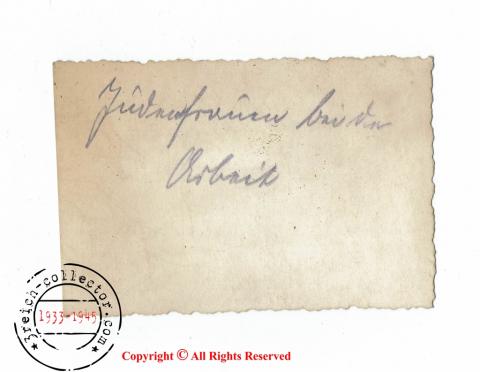 Judenfrauen bei der
Arbeit
3reich-collector.com
1933-1945
Copyright © All Rights Reserved